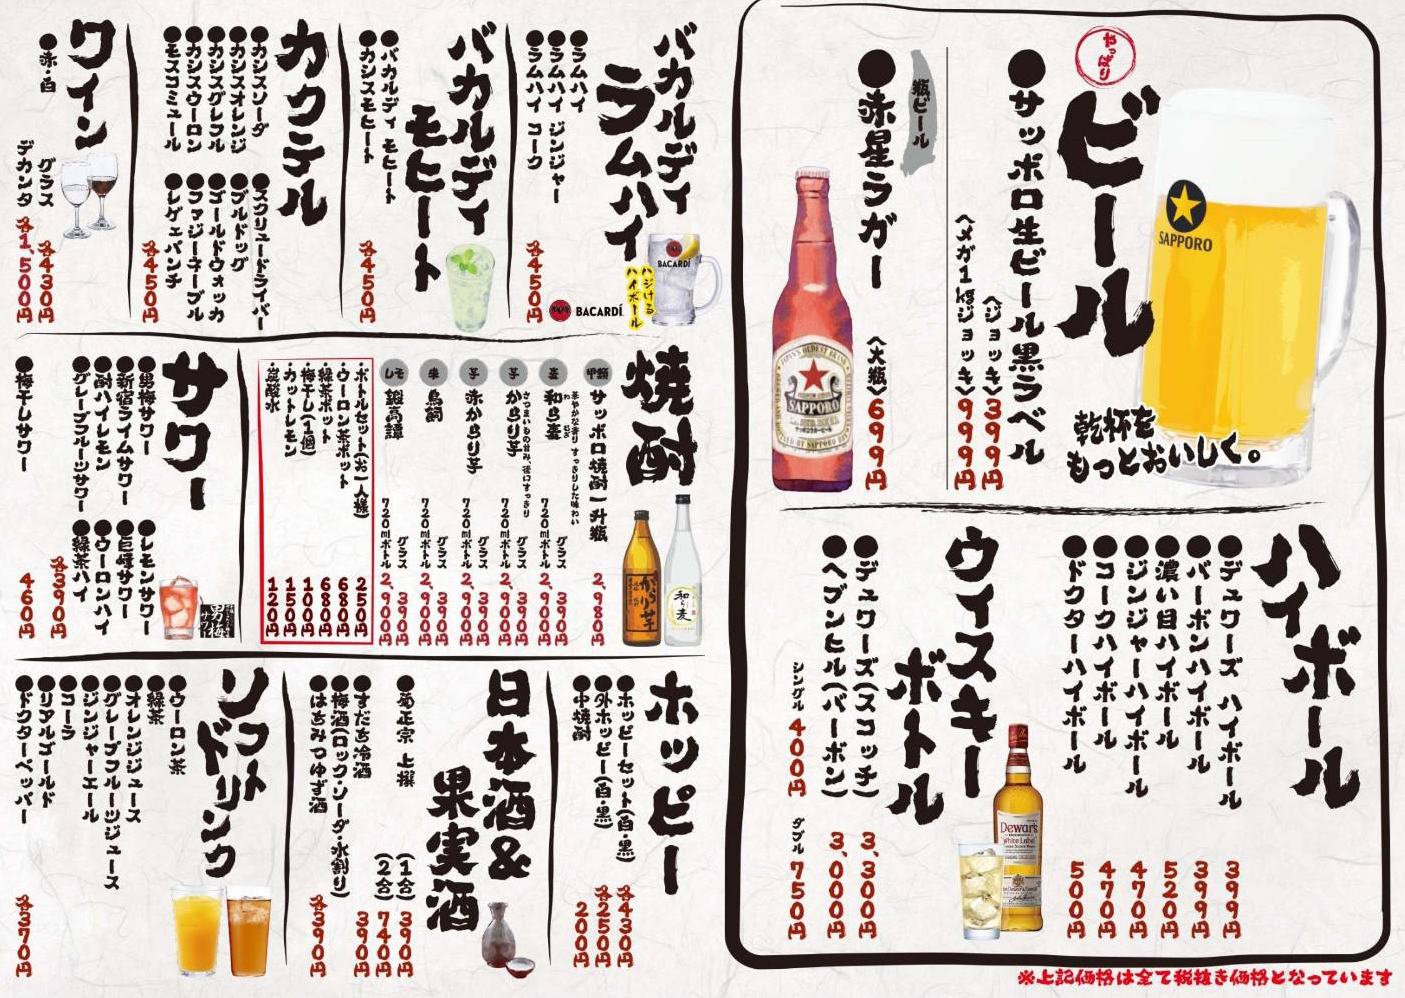 やっぱり
ビール
●サッポロ生ビール黒ラベル
〈ジョッキ〉399円
〈メガ1kgジョッキ〉999円
瓶ビール
●赤星ラガー
〈大瓶〉699円
SAPPORO
乾杯を
もっとおいしく。
JAPAN'S OLDEST BRAND
SAPPORO
LAGER BEER
ハイボール
●デュワーズ ハイボール 399円
●バーボンハイボール 399円
●濃い目ハイボール 520円
●ジンジャーハイボール 470円
●コークハイボール 470円
●ドクターハイボール 500円
ウイスキーボトル
●デュワーズ(スコッチ) 3,300円
●ヘブンヒル(バーボン) 3,000円
シングル 400円 ダブル 750円
Dewar's
White Label
※上記価格は全て税抜き価格となっています
バカルディ
ラムハイ
●ラムハイ
●ラムハイ ジンジャー
●ラムハイ コーク
各450円
BACARDÍ
ハジける
ハイボール
BACARDÍ.
バカルディ
モヒート
●バカルディ モヒート
●カシスモヒート
各450円
カクテル
●カシスソーダ
●カシスオレンジ
●カシスグレフル
●カシスウーロン
●モスコミュール
●スクリュードライバー
●ブルドッグ
●ゴールドウォッカ
●ファジーネーブル
●レゲェパンチ
各450円
ワイン
●赤・白
グラス 各430円
デカンタ 各1,500円
焼酎
甲類 サッポロ焼酎一升瓶 2,980円
麦 和ら麦
わ むぎ
華やかな香り すっきりした味わい
グラス 390円
720mlボトル 2,900円
芋 からり芋
さつまいもの甘み、後口すっきり
グラス 390円
720mlボトル 2,900円
芋 赤からり芋
グラス 390円
720mlボトル 2,900円
米 鳥飼
グラス 390円
720mlボトル 2,900円
しそ 鍛高譚
グラス 390円
720mlボトル 2,900円
・ボトルセット(お一人様) 250円
・ウーロン茶ポット 680円
・緑茶ポット 680円
・梅干し(1個) 100円
・カットレモン 150円
・炭酸水 120円
からり芋
和ら麦
サワー
●男梅サワー
●新宿ライムサワー
●酎ハイレモン
●グレープフルーツサワー
●レモンサワー
●巨峰サワー
●ウーロンハイ
●緑茶ハイ
各390円
●梅干しサワー 460円
男梅
サワー
ホッピー
●ホッピーセット(白・黒) 各430円
●外ホッピー(白・黒) 各250円
●中焼酎 200円
日本酒&
果実酒
●菊正宗 上撰 (1合) 390円
(2合) 740円
●すだち冷酒 390円
●梅酒(ロック・ソーダ・水割り)
●はちみつゆず酒
各390円
ソフト
ドリンク
●ウーロン茶
●緑茶
●オレンジジュース
●グレープフルーツジュース
●ジンジャーエール
●コーラ
●リアルゴールド
●ドクターペッパー
各370円